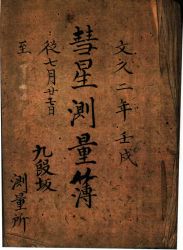 文久二年壬戌
彗星測量簿
従七月廿七日
至
九段坂
測量所